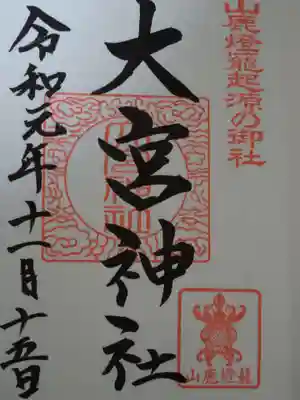 山鹿燈籠起源の御社
大宮神社
令和元年十一月十五日
山鹿燈籠